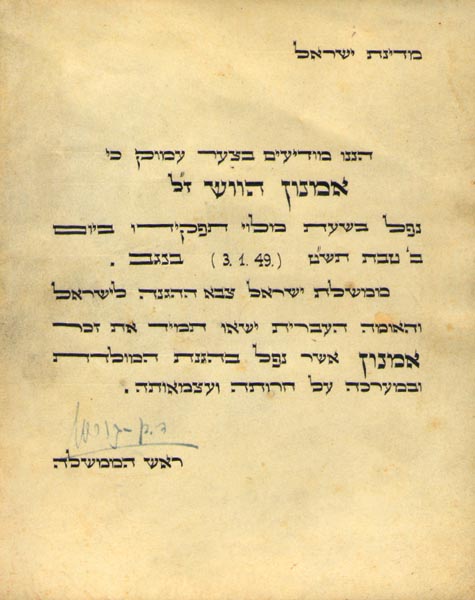 מדינת ישראל
הננו מודיעים בצער עמוק כי
אמנון הווש ז"ל
נפל בשעת מלוי תפקידו ביום
ב' טבת תש"ט (3.1.49.) בנגב.
ממשלת ישראל צבא ההגנה לישראל
והאומה העברית ישאו תמיד את זכר
אמנון אשר נפל בהגנת המולדת
ובמערכה על חרותה ועצמאותה.
ד. בן-גוריון
ראש הממשלה